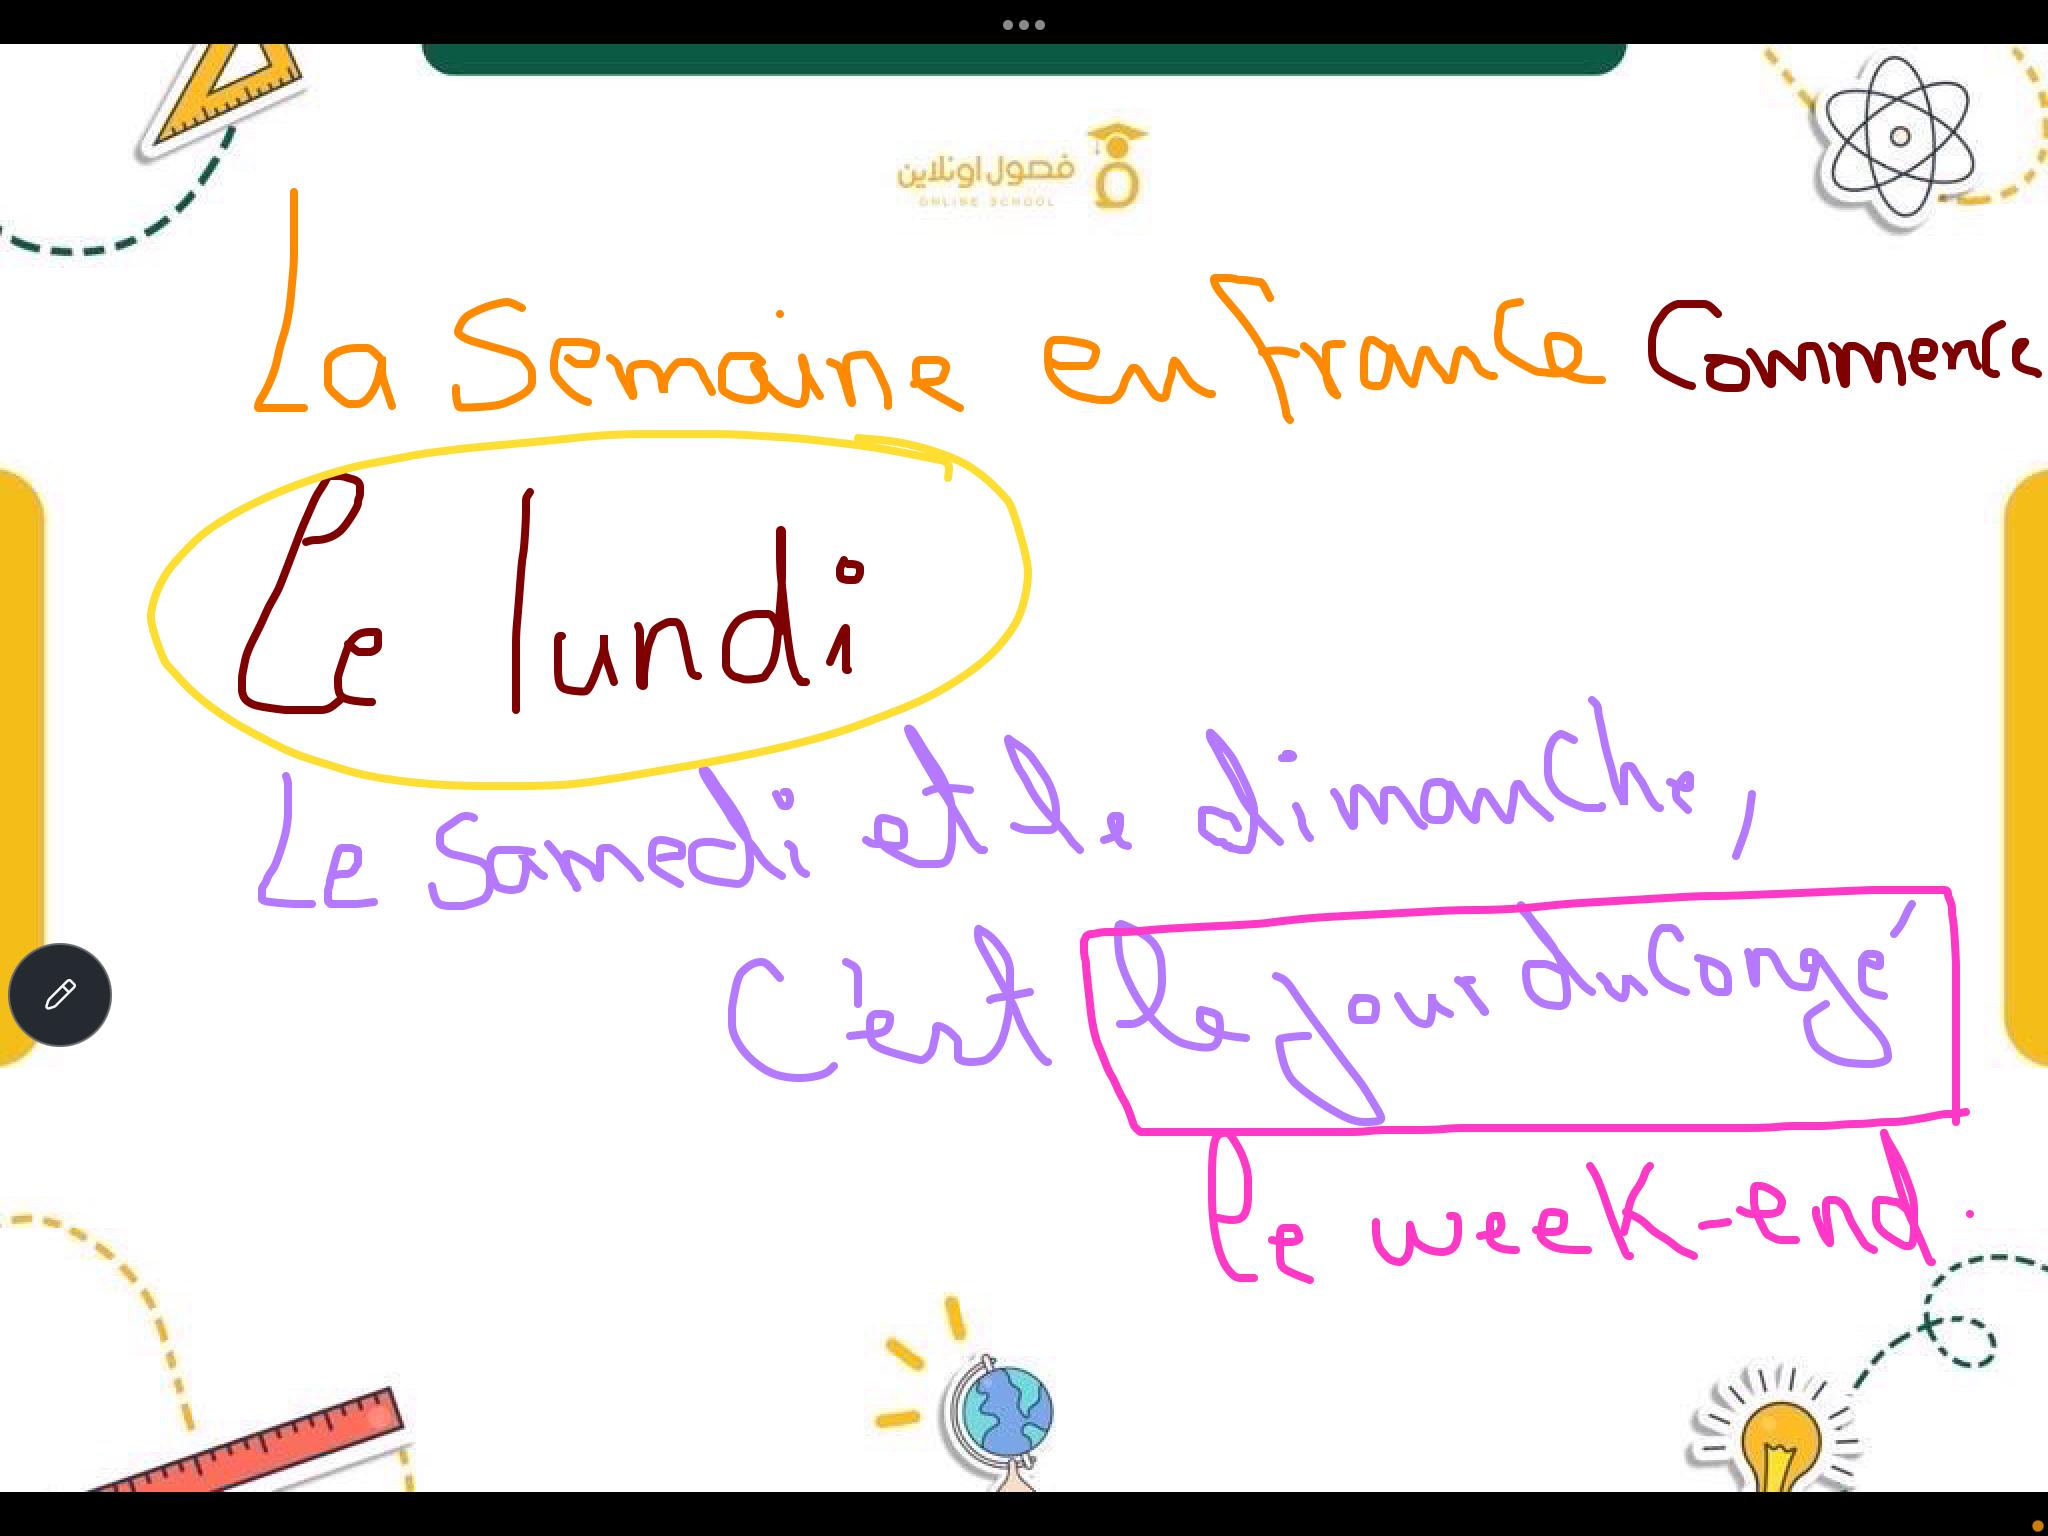 فصول اونلاين
ONLINE SCHOOL
La Semaine en France Commence
Le lundi
Le samedi et le dimanche,
C'est le jour du congé
le week-end.